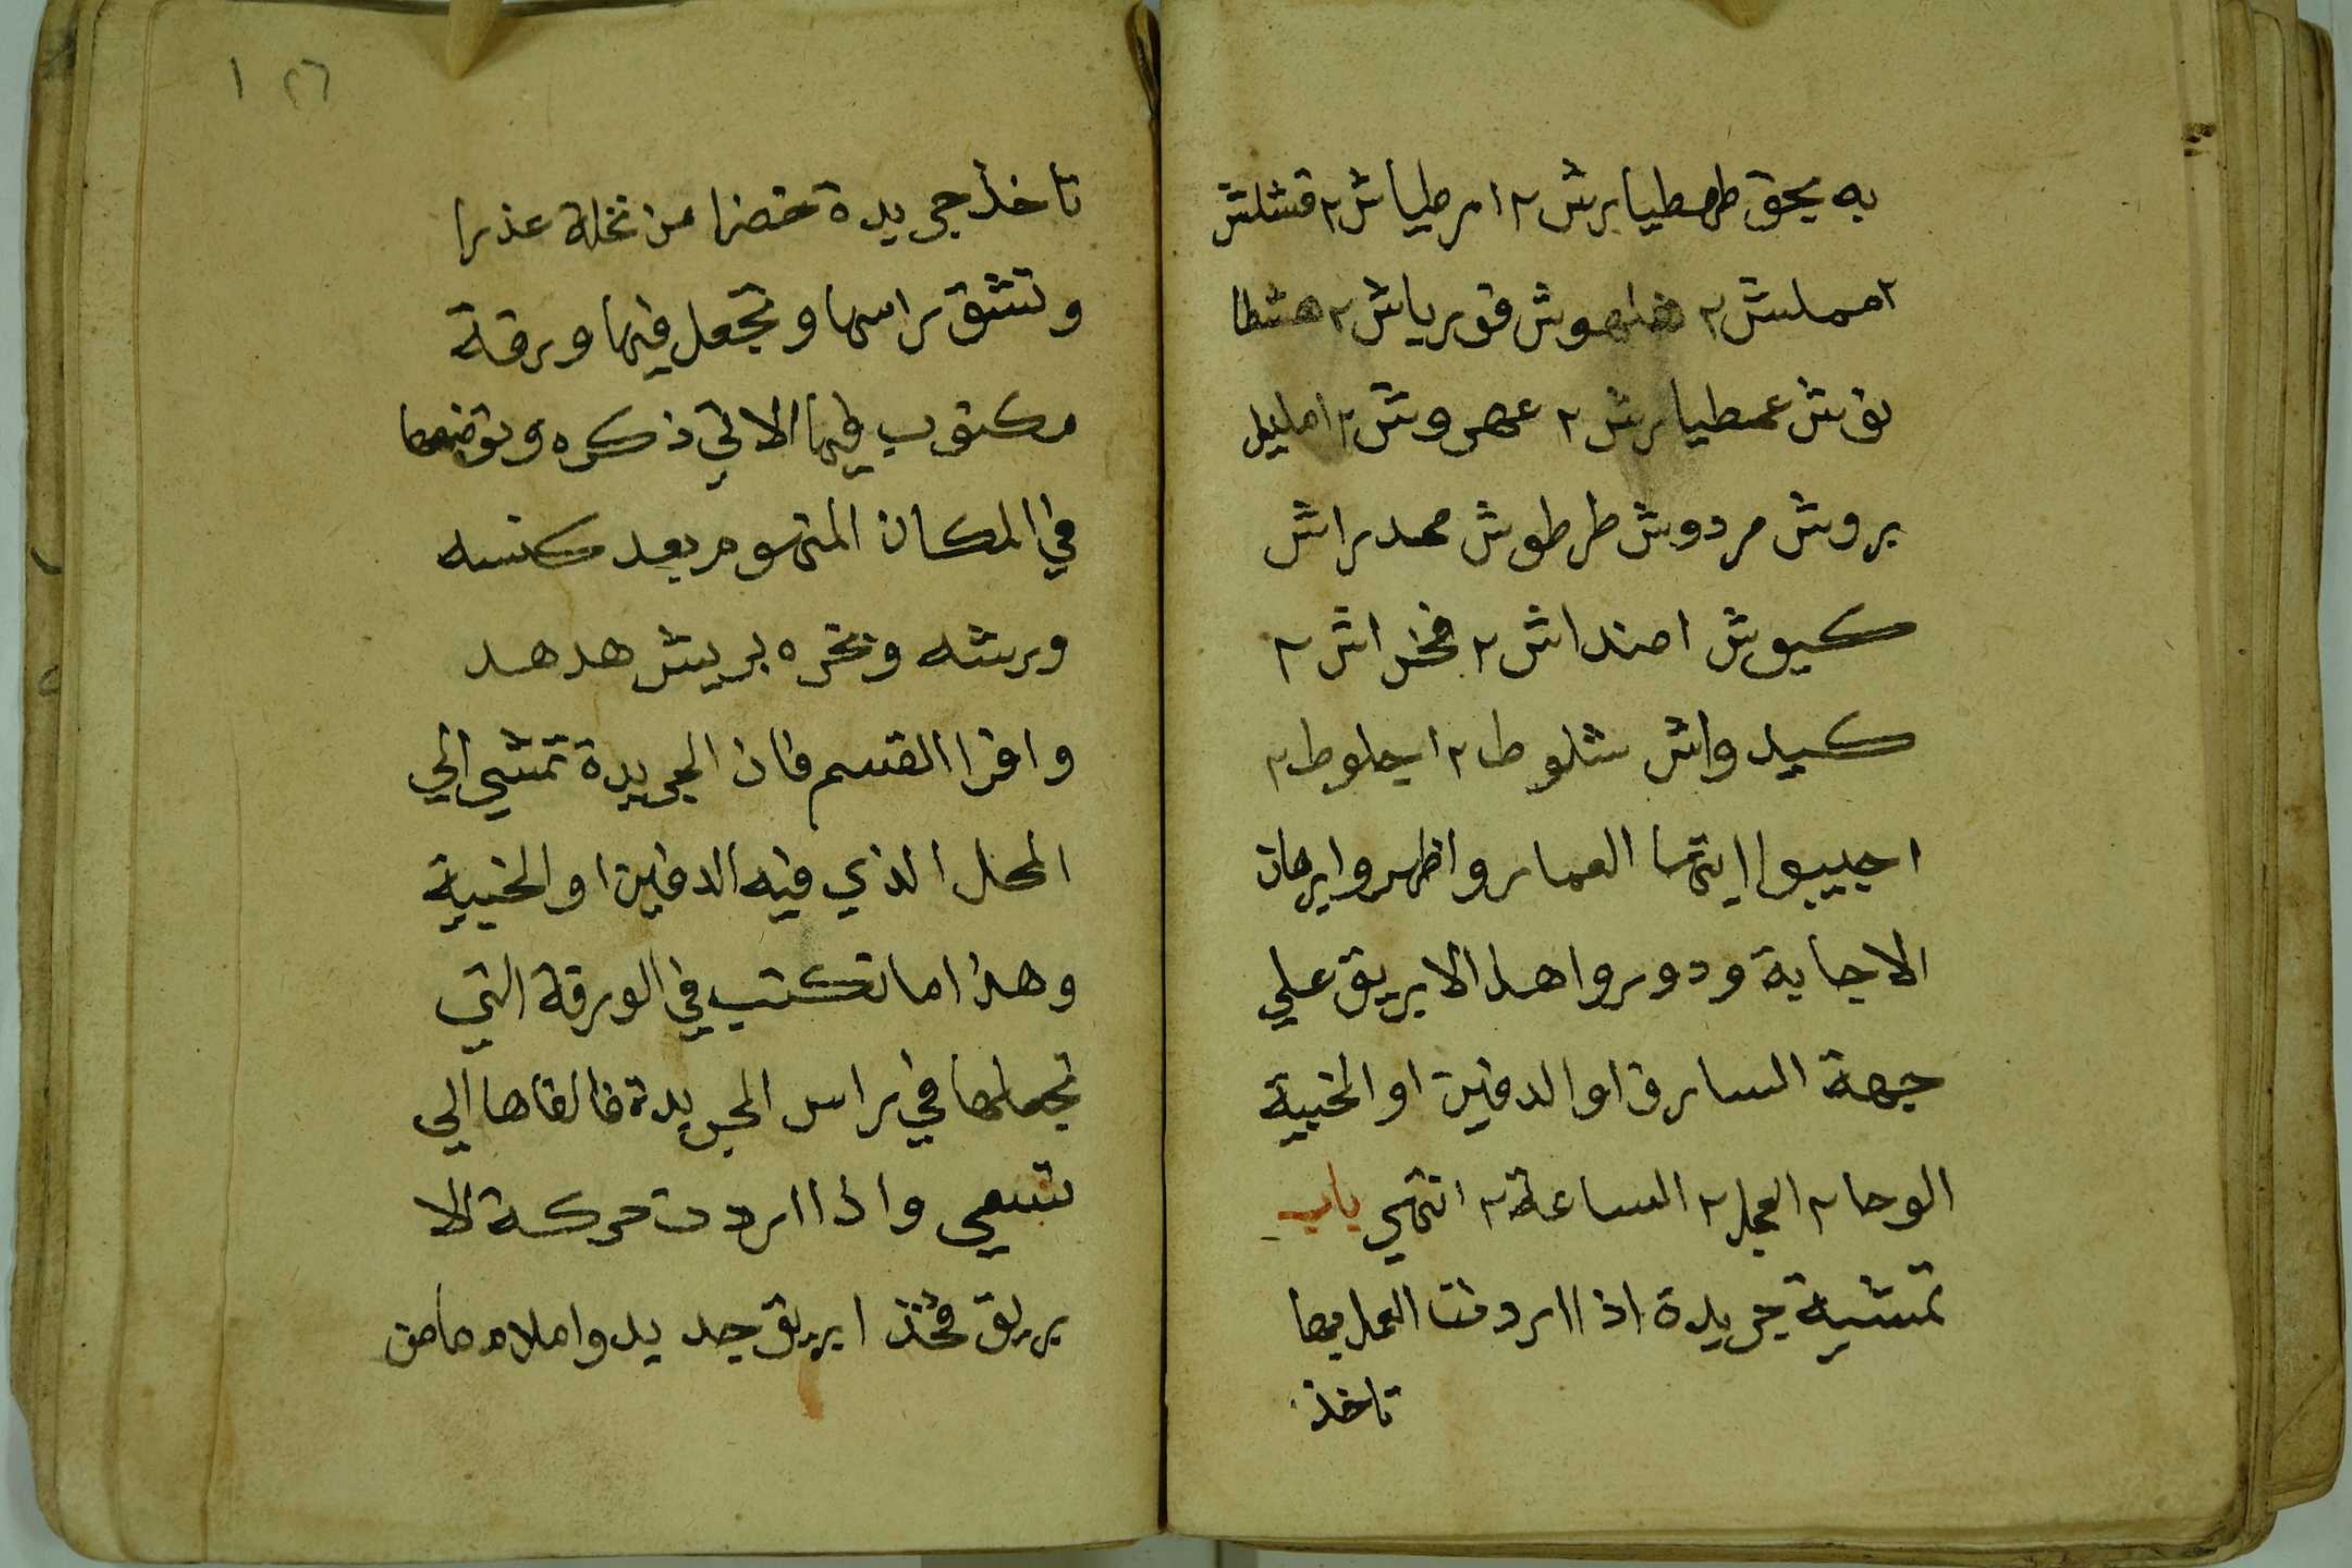 به بحق طهطيارش ٢ امرطياش ٢ قشلش
٢ مملش ٢ هلهوش قورياش ٢ هشطا
نوش عمطيارش ٢ عهروش ٢ امليل
بروش مردوش طرطوش محمدراش
كيوش اصنداش ٢ فخراش ٢
كيدواش شلوط ٢ ايحلوط ٢
اجيبوا ايتها العمار واظهروا برهان
الاجابة ودوروا هذا الابريق علي
جهة السارق او الدفين او الخبية
الوحا ٢ العجل ٢ الساعة ٢ انتهي باب
تمشية جريدة اذا اردت العمل بها
تاخذ
١٢٦
تاخذ جريدة خضرا من نخلة عذرا
وتشق راسها وتجعل فيها ورقة
مكتوب فيها الاتي ذكره وتوضعها
في المكان المتهوم بعد كنسه
ورشه وبخره بريش هدهد
واقرا القسم فان الجريدة تمشي الي
المحل الذي فيه الدفين او الخبية
وهذا ما تكتب في الورقة التي
تجعلها في راس الجريدة فالقاها الي
تسعي واذا اردت حركة الا
بريق فخذ ابريق جديد واملاه ما من